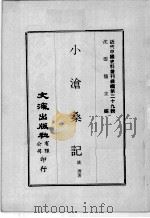 近代中國史料叢刊續編第二十九輯
沈雲龍主編
小滄桑記
姚濟著
文海出版社有限公司印行